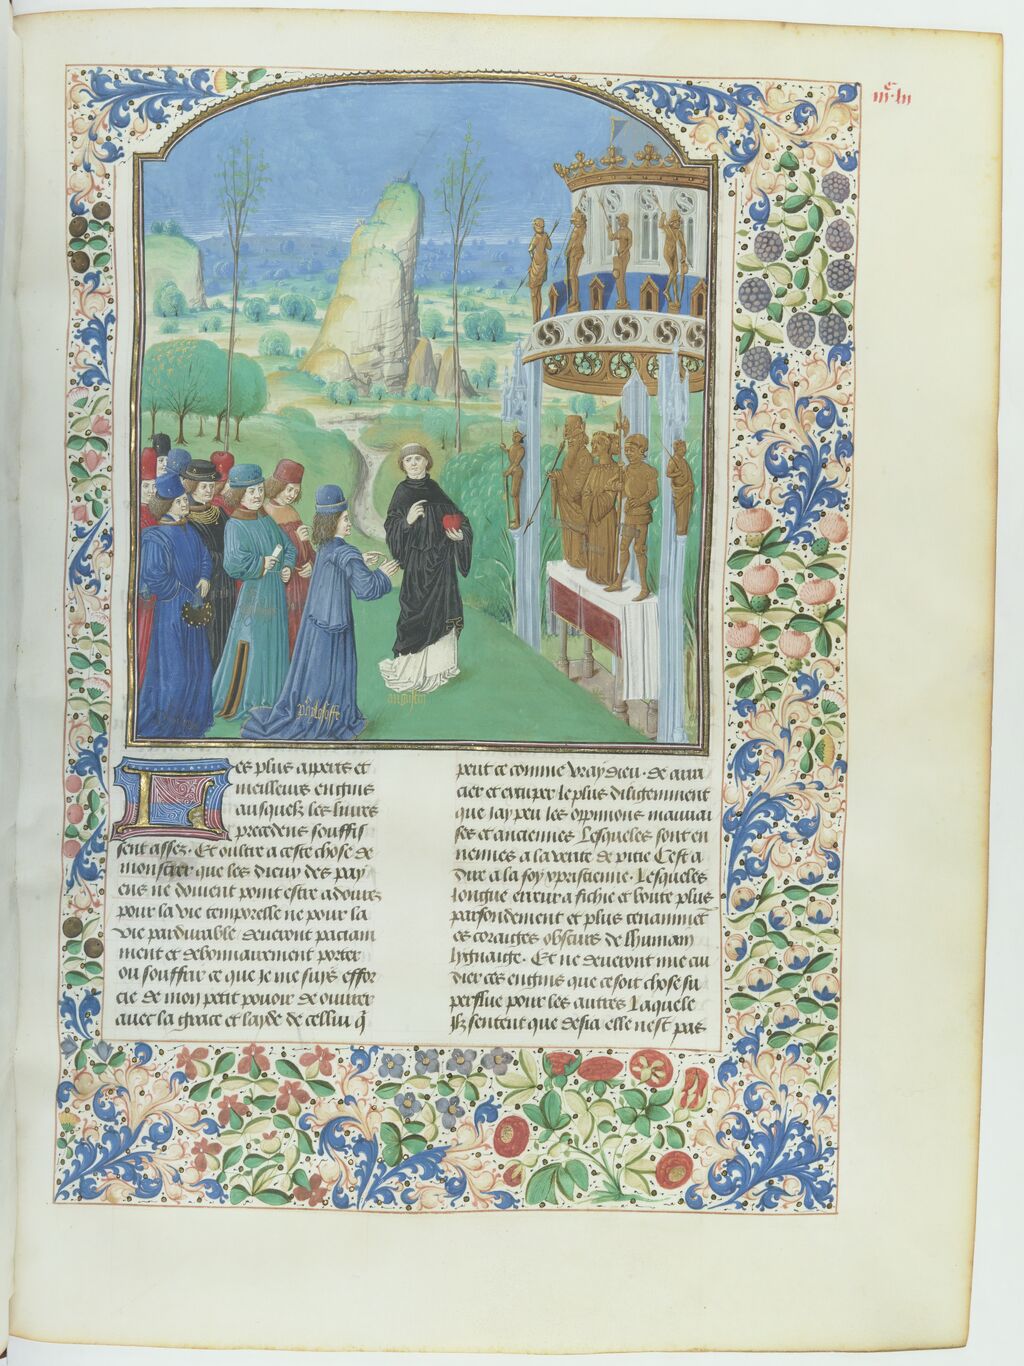 iiic lii
philosoffe
augustin
Les plus apperts et
meilleurs engins
ausquelz les liures
precedens souffis
sent assez. Et oultre a ceste chose de
monstrer que les dieux des pay
ens ne doiuent point estre adourez
pour la vie temporelle ne pour la
vie pardurable deueront paciam
ment et debonnairement porter
ou souffrir ce que Je me suis effor
cie de mon petit pouoir de ouurer
auec la grace et layde de cellui q̄
peut ce comme vray dieu. de arra
cier et extirper le plus diligemment
que Jay peu les oppinions mauuai
ses et anciennes Lesqueles sont en
nemies a la verite de pitie Cest a
dire a la foy xpristienne. Lesqueles
longue erreur a fichie et boute plus
parfondement et plus tenammēt
es coraiges obscurs de lhumain
lygnaige. Et ne deueront mie cui
dier ces engins que ce soit chose su
perflue pour les autres Laquele
Ilz sentent que desia elle nest pas